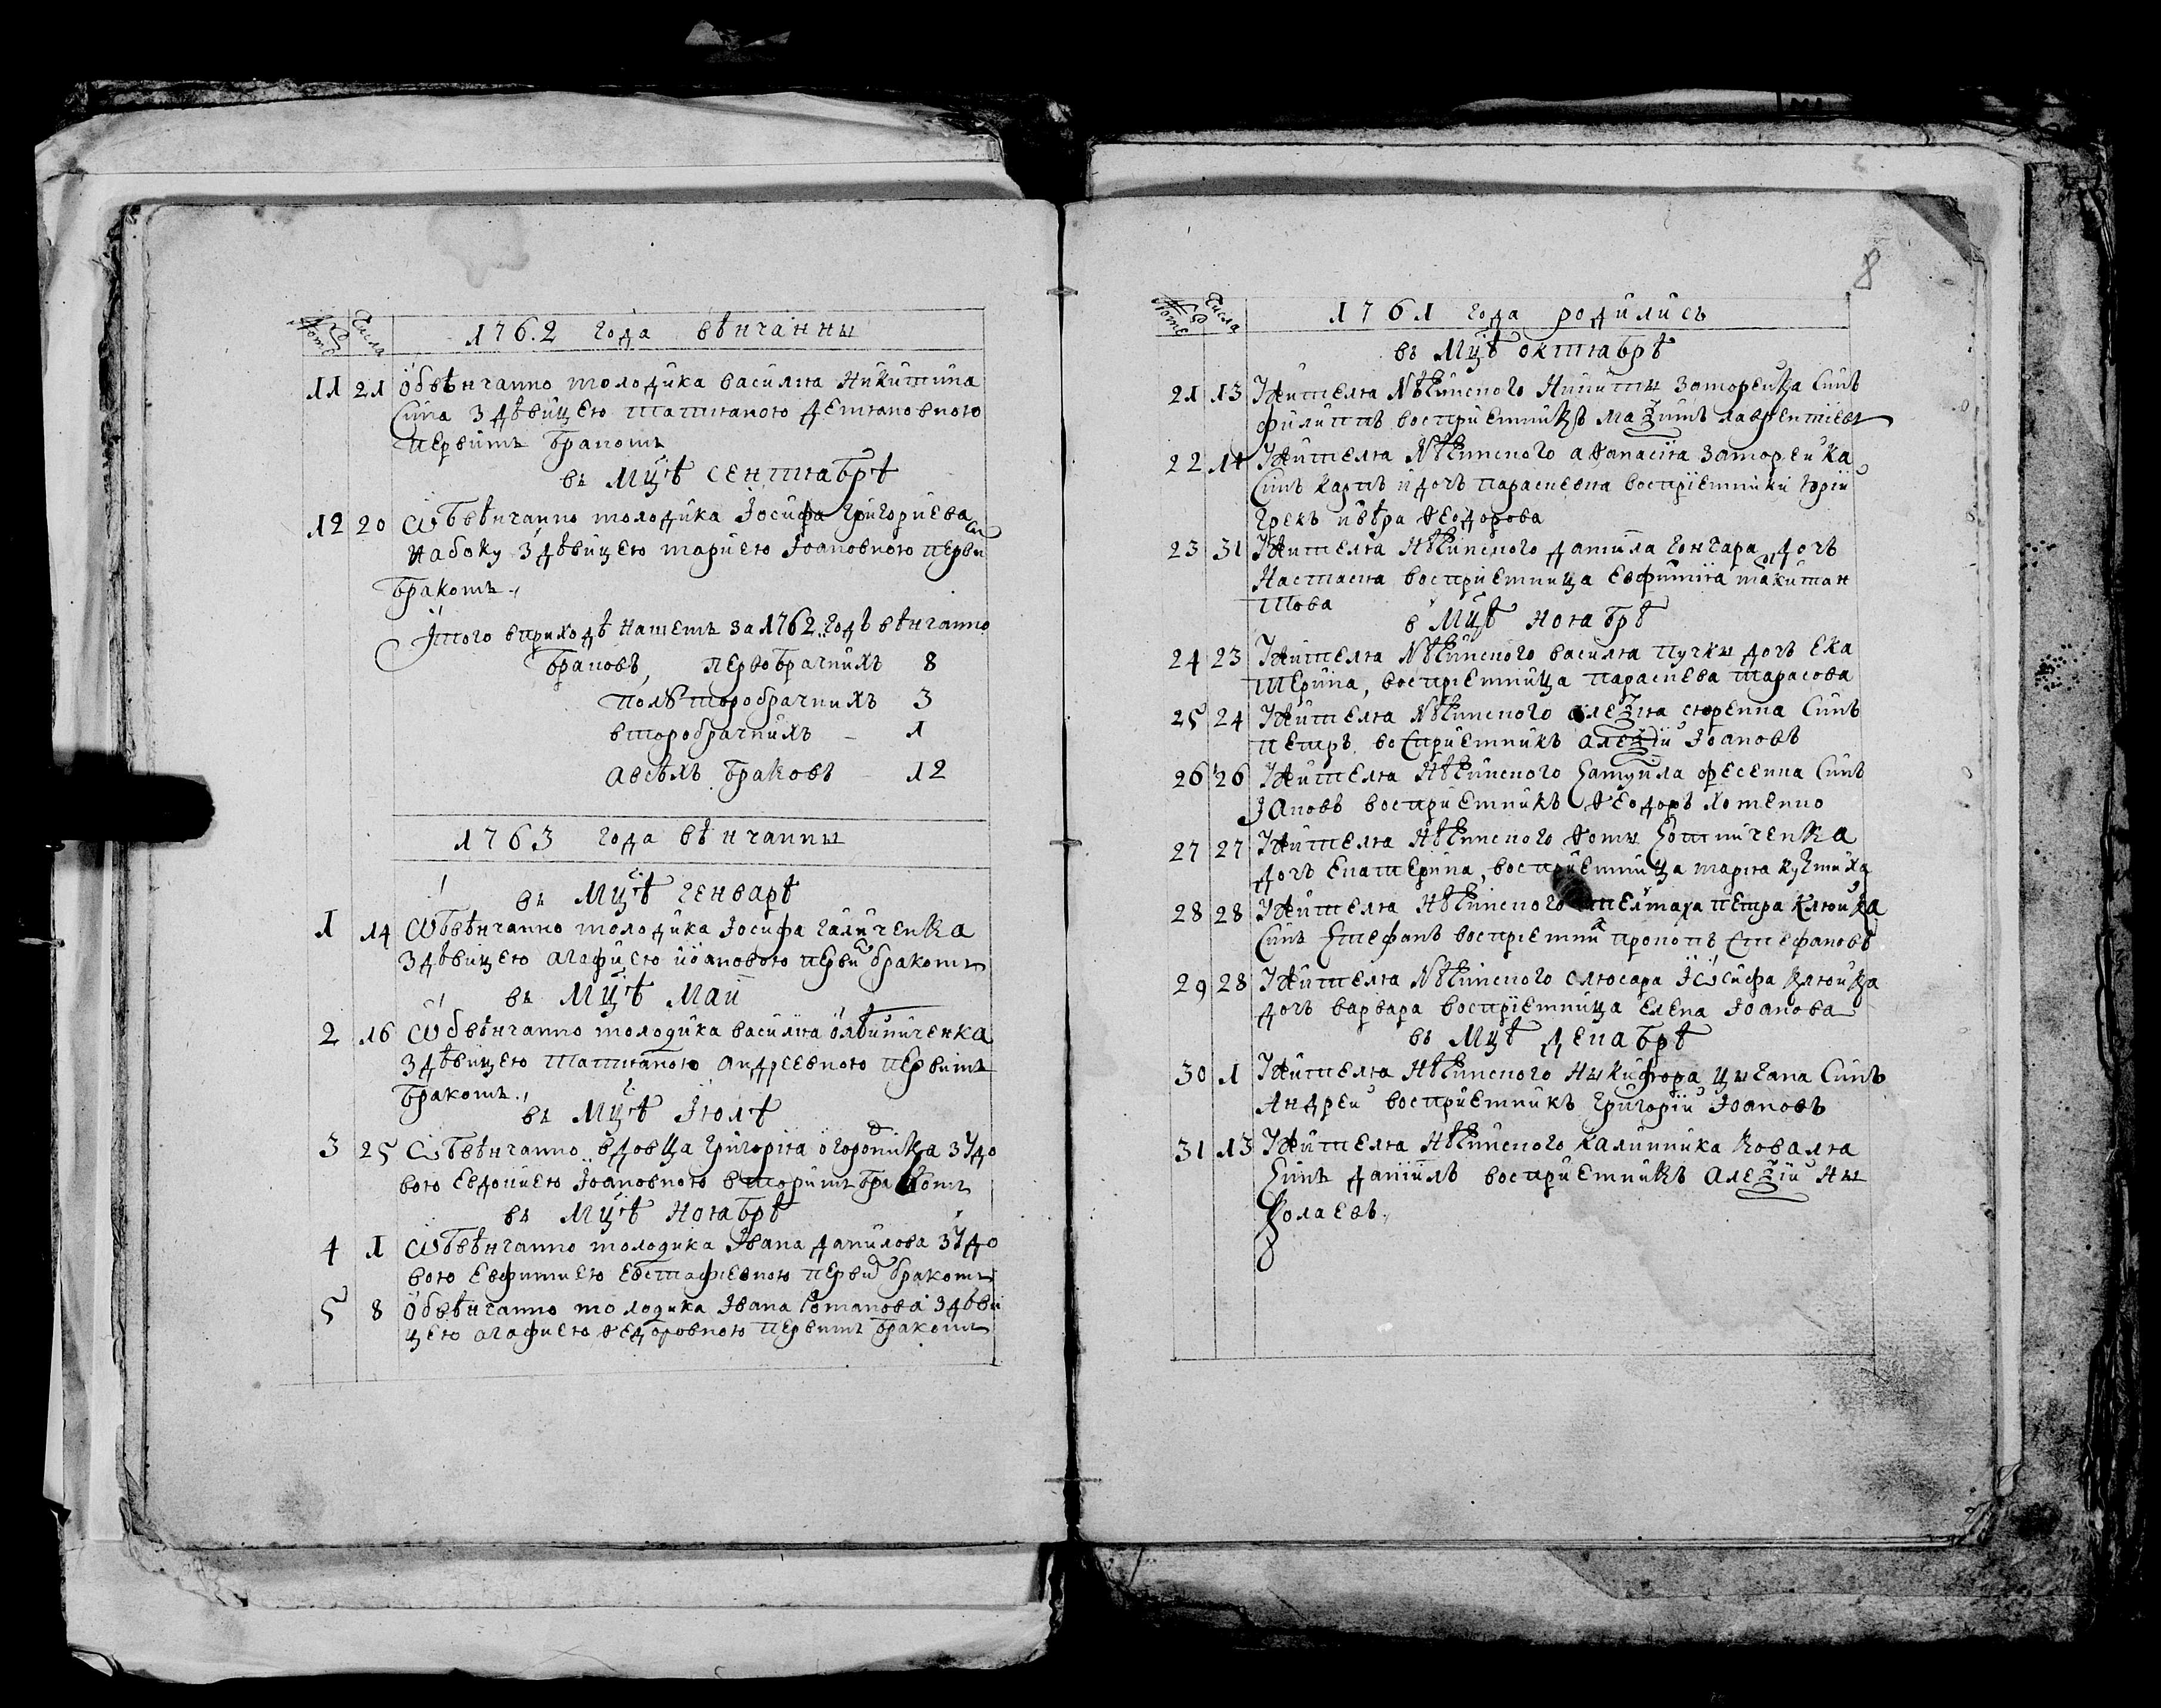 Номе Числа 1762 года вѣнчанны
11 21 Обвѣнчанно молодика василия Никитина
Сина З дѣвицею татияною демяновною
первимъ бракомъ
въ Мцѣ сентиабрѣ
12 20 Ѡбвѣнчанно молодика Іосифа григориева
Набоку З дѣвицею мариею Іоановною перви
бракомъ.
Ітого вприходѣ нашемъ За 1762 годъ вѣнчанно
браковъ, первобрачнихъ 8
полѣторобрачнихъ 3
второбрачнихъ – 1
авсѣхъ браковъ – 12
1763 года вѣнчанны
въ Мцѣ генварѣ
1 14 Ѡбвѣнчанно молодика Іосифа галиченка
З дѣвицею агафиею иоановою перви бракомъ
въ Мцѣ Маи
2 16 Ѡбвѣнчанно молодика василия олѣйниченка
З дѣвицею татияною андреевною первимъ
бракомъ.
въ Мцѣ Іюлѣ
3 25 Ѡбвѣнчанно вдовца григория огородника З удо
вою евдокиею Іоановною вторимъ бракомъ
въ Мцѣ Ноябрѣ
4 1 Ѡбвѣнчанно молодика Івана данилова З удо
вою евфимиею евстафиевною перви бракомъ
5 8 Обвѣнчанно молодика Івана романова З дѣви
цею агафиею ѳедоровною первимъ бракомъ
8
Номе Числа 1761 года родились
въ Мцѣ октиабрѣ
21 13 Жителя Нѣжинского Никиты Заморенка Синъ
филиппъ восприемникъ маѯимъ лаврентиевъ
22 14 Жителя Нѣжинского аѳанасия Заморенка
Синъ карпъ и дочъ парасцевиа восприемники юрий
грекъ и вѣра ѳеодорова
23 31 Жителя Нѣжинского данила гончара дочъ
Настасиа восприемница евфимиа
това
в Мцѣ Ноябрѣ
24 23 Жителя Нѣжинского василия пучки дочъ ека
терина, восприемница параскева тарасова
25 24 Жителя Нѣжинского алеѯия Синъ
петръ, восприемникъ алеѯий Іоановъ
26 26 Жителя Нѣжинского Самуила фесенка Синъ
Іаковъ восприемникъ ѳеодоръ хоменко
27 27 Жителя Нѣжинского ѳомы
дочъ екатерина, восприемница мариа кузмиха
28 28 Жителя Нѣжинского петра клюйка
Синъ Стефанъ восприемникъ прокопъ Стефановъ
29 28 Жителя Нѣжинского слюсара Іѡсифа клюйка
дочъ варвара восприемница елена Іоанова
въ Мцѣ декабрѣ
30 1 Жителя Нѣжинского Никифора цыгана Синъ
Андрей восприемникъ григорий Іоановъ
31 13 Жителя Нѣжинского калиника коваля
Синъ даниилъ восприемникъ алеѯий Ны
колаевъ.